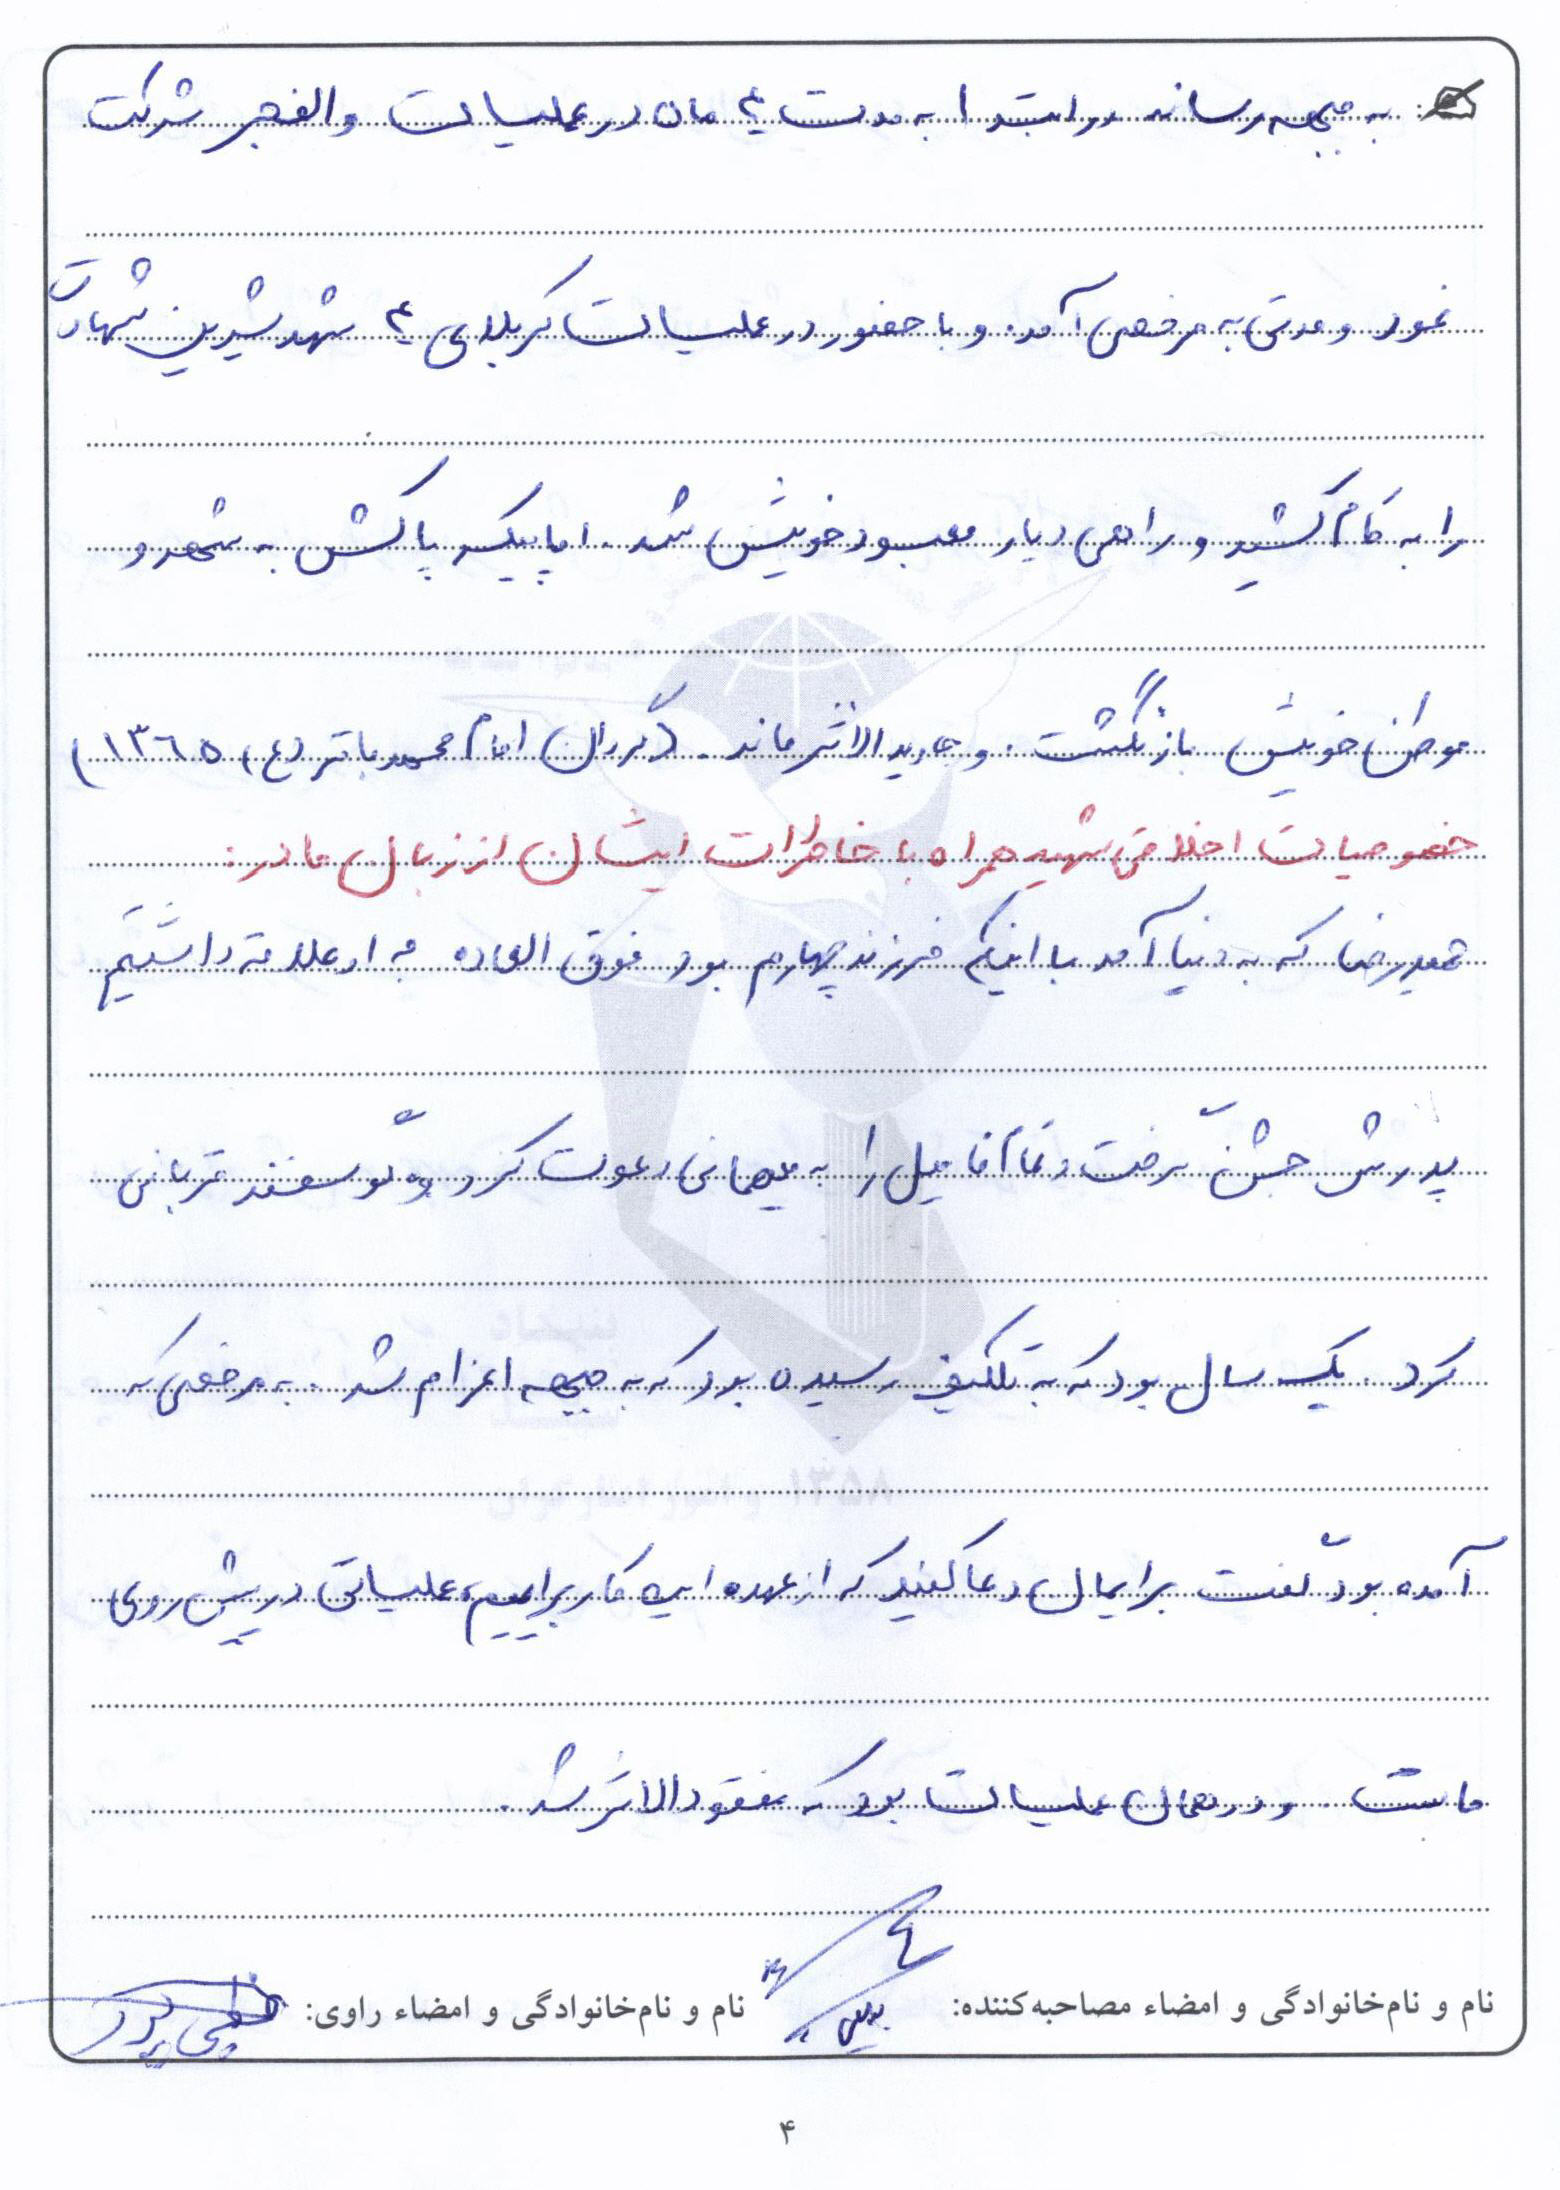 به جبهه رساند در ابتدا به مدت ۴ ماه در عملیات والفجر شرکت
نمود و مدتی به مرخصی آمد. و با حضور در عملیات کربلای ۴ شهد شیرین شهادت
را به کام کشید و راهی دیار معبود خویش شد. اما پیکر پاکش به شهر و
موطن خویش بازنگشت. و جاویدالاثر ماند. (گردان امام محمد باقر (ع) ۱۳۶۵)
خصوصیات اخلاقی شهید همراه با خاطرات ایشان از زبان مادر:
حمیدرضا که به دنیا آمد با اینکه فرزند چهارم بود فوق العاده به او علاقه داشتیم
پدرش جشن گرفت و تمام فامیل را به میهمانی دعوت کرد و گوسفند قربانی
کرد. یک سال بود که به تکلیف رسیده بود که به جبهه اعزام شد. به مرخصی که
آمده بود گفت برایمان دعا کنید که از عهده این کار برآییم، عملیاتی در پیش روی
ماست. و در همان عملیات بود که مفقودالاثر شد.
نام و نام‌خانوادگی و امضاء مصاحبه‌کننده:
نام و نام‌خانوادگی و امضاء راوی:
۴